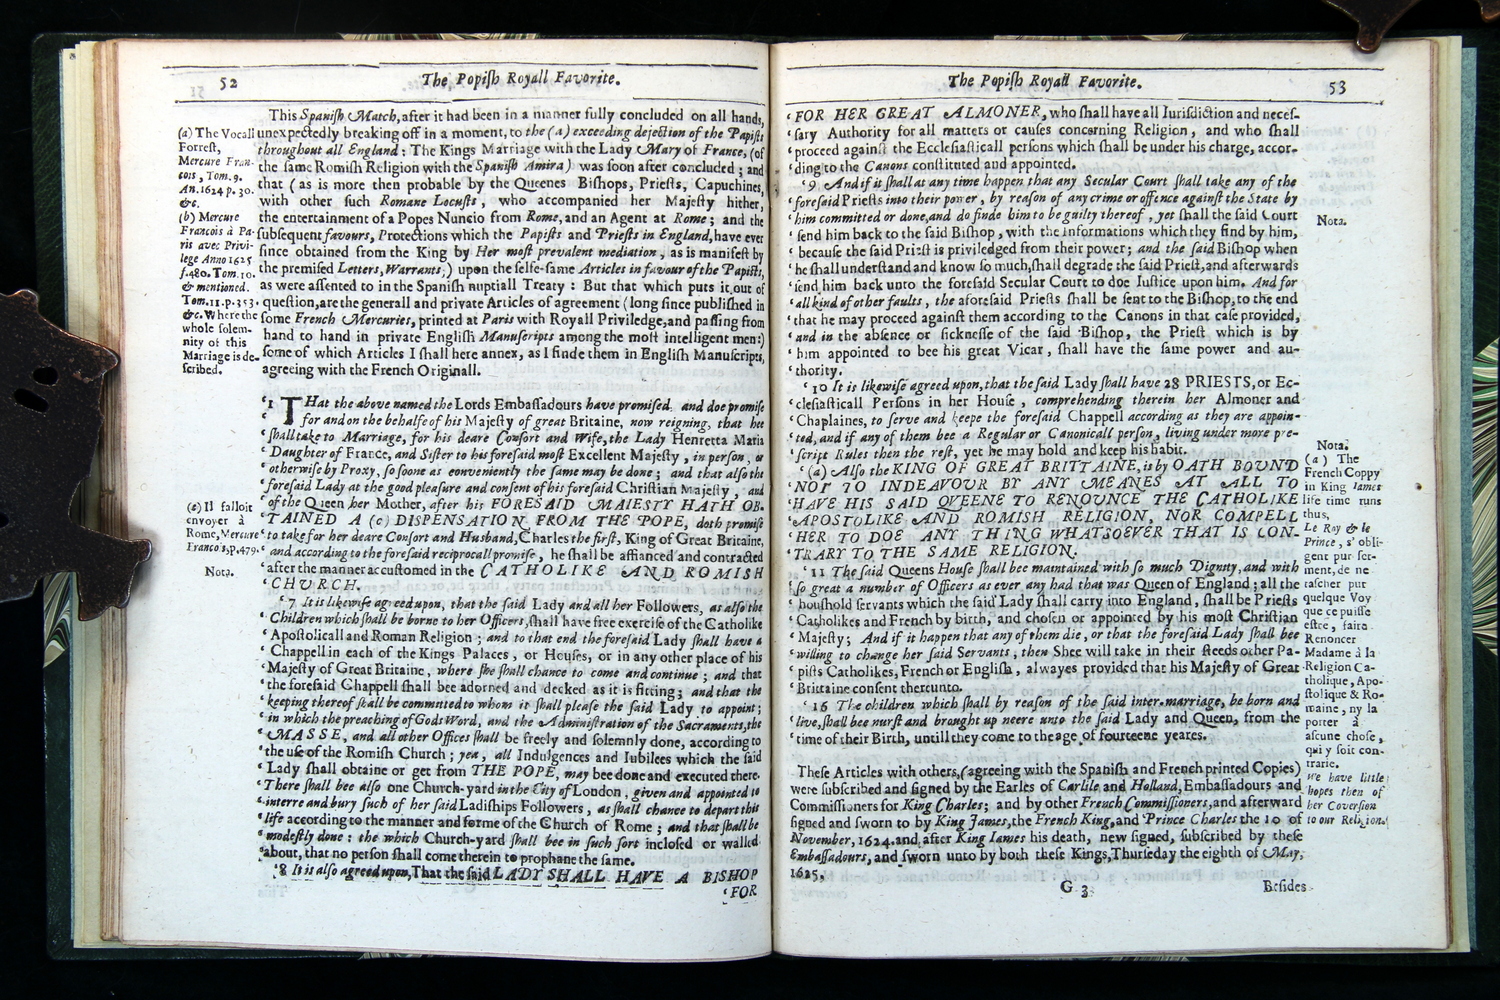 52
The Popish Royall Favorite.
This Spanish Match, after it had been in a manner fully concluded on all hands,
unexpectedly breaking off in a moment, to the (a) exceeding dejection of the Papists
throughout all England: The Kings Marriage with the Lady Mary of France, (of
the same Romish Religion with the Spanish Amira) was soon after concluded; and
that (as is more then probable by the Queenes Bishops, Priests, Capuchines,
with other such Romane Locusts, who accompanied her Majesty hither,
the entertainment of a Popes Nuncio from Rome, and an Agent at Rome; and the
subsequent favours, Protections which the Papists and Priests in England, have ever
since obtained from the King by Her most prevalent mediation, as is manifest by
the premised Letters, Warrants,) upon the selfe-same Articles in favour of the Papists,
as were assented to in the Spanish nuptiall Treaty: But that which puts it out of
question, are the generall and private Articles of agreement (long since published in
some French Mercuries, printed at Paris with Royall Priviledge, and passing from
hand to hand in private English Manuscripts among the most intelligent men:)
some of which Articles I shall here annex, as I finde them in English Manuscripts,
agreeing with the French Originall.
(a) The Vocall
Forrest,
Mercure Fran-
cois, Tom. 9.
An. 1624 p. 30.
&c.
(b) Mercure
Francois à Pa-
ris avec Privi-
lege Anno 1625
f. 480. Tom. 10.
& mentioned.
Tom. 11. p. 353.
&c. Where the
whole solem-
nity of this
Marriage is de-
scribed.
‘1 THat the above named the Lords Embassadours have promised, and doe promise
‘for and on the behalfe of his Majesty of great Britaine, now reigning, that hee
‘shall take to Marriage, for his deare Consort and Wife, the Lady Henretta Maria
‘Daughter of France, and Sister to his foresaid most Excellent Majesty, in person, or
‘otherwise by Proxy, so soone as conveniently the same may be done; and that also the
‘foresaid Lady at the good pleasure and consent of his foresaid Christian Majesty, and
‘of the Queen her Mother, after his FORESAID MAIESTY HATH OB-
‘TAINED A (c) DISPENSATION FROM THE POPE, doth promise
‘to take for her deare Consort and Husband, Charles the first, King of Great Britaine,
‘and according to the foresaid reciprocall promise, he shall be affianced and contracted
‘after the manner accustomed in the CATHOLIKE AND ROMISH
‘CHURCH.
(c) Il falloit
envoyer à
Rome, Mercure
Francois, p. 479.
Nota.
‘7 It is likewise agreed upon, that the said Lady and all her Followers, as also the
‘Children which shall be borne to her Officers, shall have free exercise of the Catholike
‘Apostolicall and Roman Religion; and to that end the foresaid Lady shall have a
‘Chappell in each of the Kings Palaces, or Houses, or in any other place of his
‘Majesty of Great Britaine, where she shall chance to come and continue; and that
‘the foresaid Chappell shall bee adorned and decked as it is fitting; and that the
‘keeping thereof shall be committed to whom it shall please the said Lady to appoint;
‘in which the preaching of Gods Word, and the Administration of the Sacraments, the
‘MASSE, and all other Offices shall be freely and solemnly done, according to
‘the use of the Romish Church; yea, all Indulgences and Iubilees which the said
‘Lady shall obtaine or get from THE POPE, may bee done and executed there.
‘There shall bee also one Church-yard in the City of London, given and appointed to
‘interre and bury such of her said Ladiships Followers, as shall chance to depart this
‘life according to the manner and forme of the Church of Rome; and that shall be
‘modestly done: the which Church-yard shall bee in such sort inclosed or walled
‘about, that no person shall come therein to prophane the same.
‘8 It is also agreed upon, That the said LADY SHALL HAVE A BISHOP
‘FOR
The Popish Royall Favorite.
53
‘FOR HER GREAT ALMONER, who shall have all Iurisdiction and neces-
‘sary Authority for all matters or causes concerning Religion, and who shall
‘proceed against the Ecclesiasticall persons which shall be under his charge, accor-
‘ding to the Canons constituted and appointed.
‘9 And if it shall at any time happen that any Secular Court shall take any of the
‘foresaid Priests into their power, by reason of any crime or offence against the State by
‘him committed or done, and do finde him to be guilty thereof, yet shall the said Court
‘send him back to the said Bishop, with the informations which they find by him,
‘because the said Priest is priviledged from their power; and the said Bishop when
‘he shall understand and know so much, shall degrade the said Priest, and afterwards
‘send him back unto the foresaid Secular Court to doe Iustice upon him. And for
‘all kind of other faults, the aforesaid Priests shall be sent to the Bishop, to the end
‘that he may proceed against them according to the Canons in that case provided,
‘and in the absence or sicknesse of the said Bishop, the Priest which is by
‘him appointed to bee his great Vicar, shall have the same power and au-
‘thority.
Nota.
‘10 It is likewise agreed upon, that the said Lady shall have 28 PRIESTS, or Ec-
‘clesiasticall Persons in her House, comprehending therein her Almoner and
‘Chaplaines, to serve and keepe the foresaid Chappell according as they are appoin-
‘ted, and if any of them bee a Regular or Canonicall person, living under more pre-
‘script Rules then the rest, yet he may hold and keep his habit.
‘(a) Also the KING OF GREAT BRITTAINE, is by OATH BOUND
‘NOT TO INDEAVOUR BY ANY MEANES AT ALL TO
‘HAVE HIS SAID QUEENE TO RENOUNCE THE CATHOLIKE
‘APOSTOLIKE AND ROMISH RELIGION, NOR COMPELL
‘HER TO DOE ANY THING WHATSOEVER THAT IS CON-
‘TRARY TO THE SAME RELIGION.
‘11 The said Queens House shall bee maintained with so much Dignity, and with
‘so great a number of Officers as ever any had that was Queen of England; all the
‘houshold servants which the said Lady shall carry into England, shall be Priests
‘Catholikes and French by birth, and chosen or appointed by his most Christian
‘Majesty; And if it happen that any of them die, or that the foresaid Lady shall bee
‘willing to change her said Servants, then Shee will take in their steeds other Pa-
‘pists Catholikes, French or English, alwayes provided that his Majesty of Great
‘Brittaine consent thereunto.
‘16 The children which shall by reason of the said inter-marriage, be born and
‘live, shall bee nurst and brought up neere unto the said Lady and Queen, from the
‘time of their Birth, untill they come to the age of fourteene yeares.
Nota.
(a) The
French Coppy
in King Iames
life time runs
thus,
Le Roy & le
Prince, s' obli-
gent par ser-
ment, de ne
tascher par
quelque Voy
que ce puisse
estre, faire
Renoncer
Madame à la
Religion Ca-
tholique, Apo-
stolique & Ro-
maine, ny la
porter à
aucune chose,
qui y soit con-
traire.
We have little
hopes then of
her Coversion
to our Religion.
These Articles with others, (agreeing with the Spanish and French printed Copies)
were subscribed and signed by the Earles of Carlile and Holland, Embassadours and
Commissioners for King Charles; and by other French Commissioners, and afterward
signed and sworn to by King James, the French King, and Prince Charles the 10 of
November, 1624. and after King Iames his death, new signed, subscribed by these
Embassadours, and sworn unto by both these Kings, Thurseday the eighth of May,
1625,
G 3
Besides